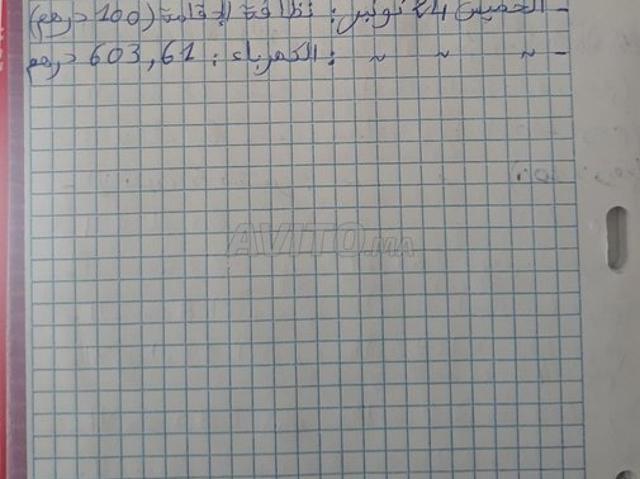 - الخميس 24 نونبر: نظافة الإقامة (100 درهم)
- ~ ~ ~ : الكهرباء : 603,61 درهم
AVITO.MA